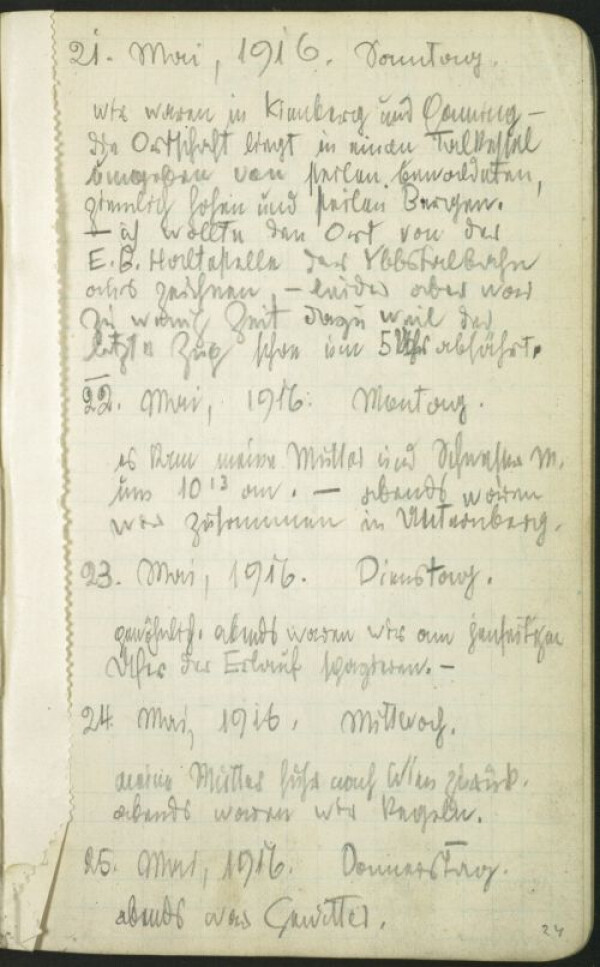 21. Mai, 1916. Sonntag.
wir waren in Kienberg und Gaming –
die Ortschaft liegt in einen Talkessel
umgeben von steilen, bewaldeten,
ziemlich hohen und steilen Bergen.
– ich wollte den Ort von der
E.B. Haltestelle der Ybbstalbahn
aus zeichnen, – leider aber war
zu wenig Zeit dazu weil der
letzte Zug schon um 5 Uhr abfährt.
22. Mai, 1916. Montag.
es kam meine Mutter und Schwester M.
um 10 13 an. – abends waren
wir zusammen in Unternberg.
23. Mai, 1916. Dienstag.
gewöhnlich. abends waren wir am jenseitigen
Ufer der Erlauf spazieren. –
24. Mai, 1916. Mittwoch.
meine Mutter fuhr nach Wien zurück.
abends waren wir kegeln.
25. Mai, 1916. Donnerstag.
abends war Gewitter.
24